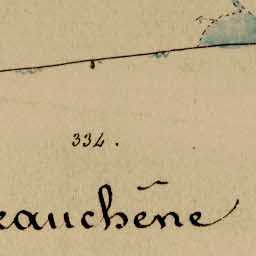 334.
eauchêne